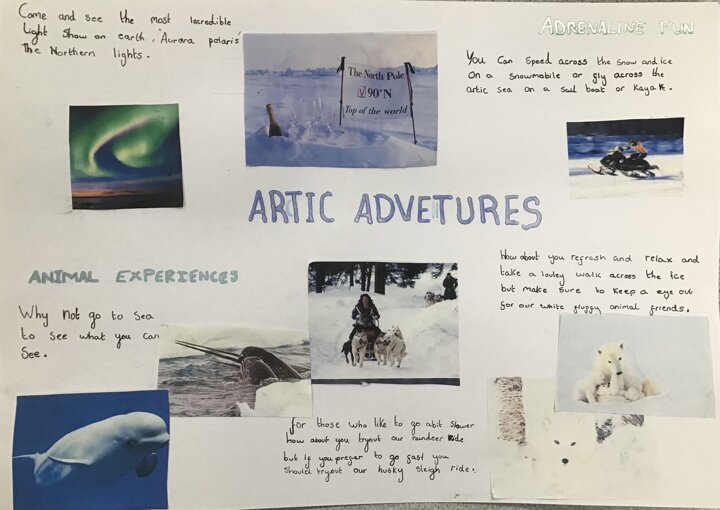 Come and see the most incredible
Light Show on earth, 'Aurora polaris'
The Northern lights.
The North Pole
90°N
Top of the world
ADRENALINE FUN
You Can Speed across the Snow and ice
On a Snowmobile or fly across the
artic sea on a sail boat or Kayak.
ARTIC ADVETURES
ANIMAL EXPERIENCES
Why not go to Sea
to see what you can
See.
How about you refresh and relax and
take a lovley walk across the ice
but make sure to keep a eye out
for our white fluffy animal friends.
for those who like to go abit slower
how about you tryout our raindeer Ride
but if you prefer to go fast you
should tryout our husky sleigh ride.